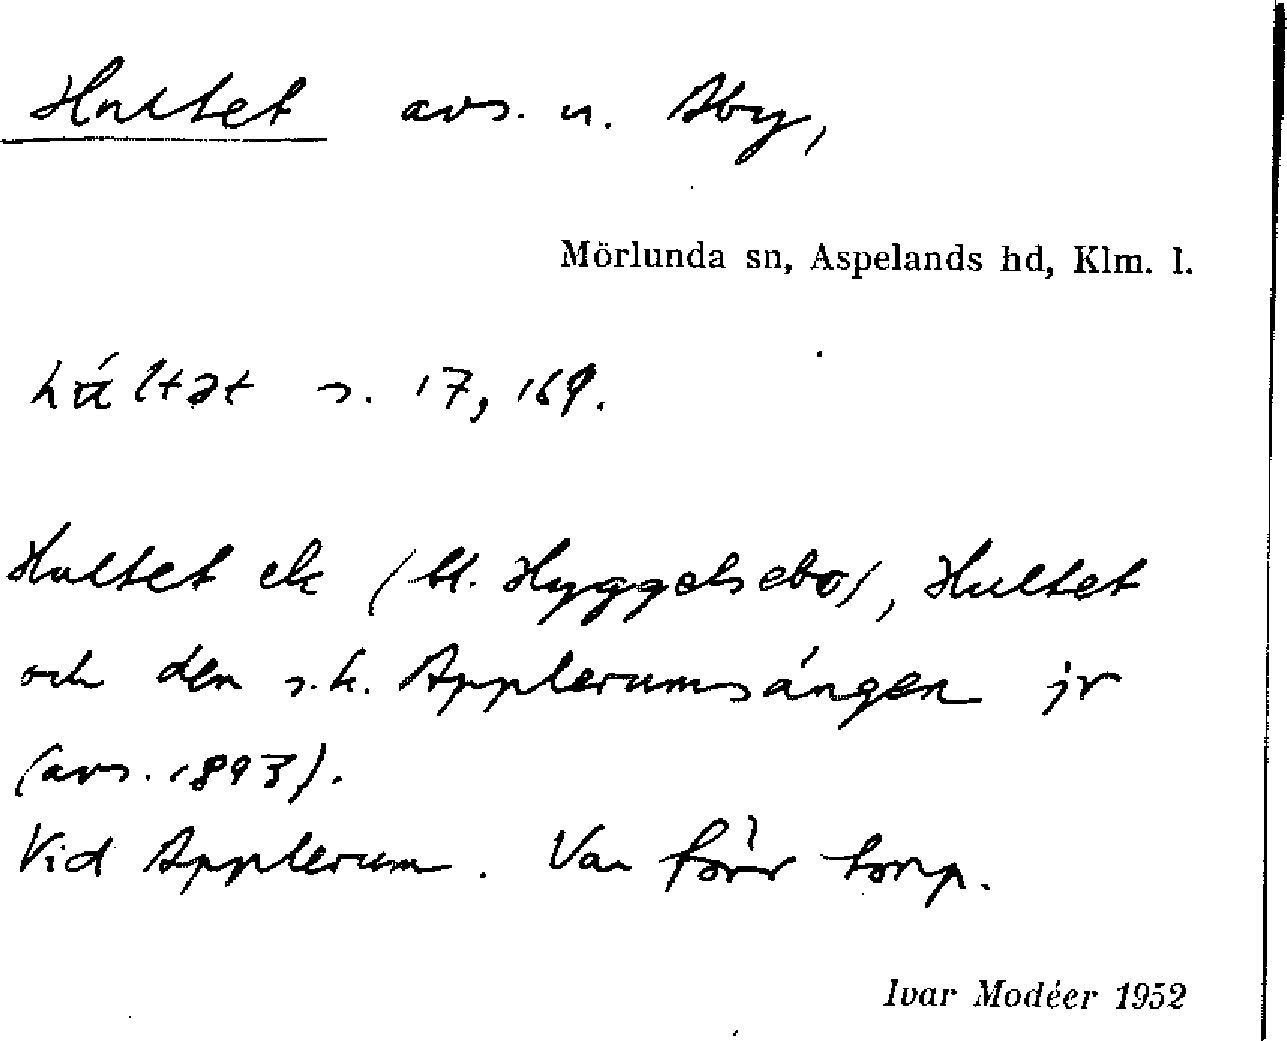 Hultet avs. u. Åby,
Mörlunda sn, Aspelands hd, Klm. l.
s. 17, 169.
Hultet ek (bl. Hyggelsebo), Hultet
och den s.k. Applerumsängen jr
(avs. 1893).
Vid Applerum. Var förr torp.
Ivar Modéer 1952